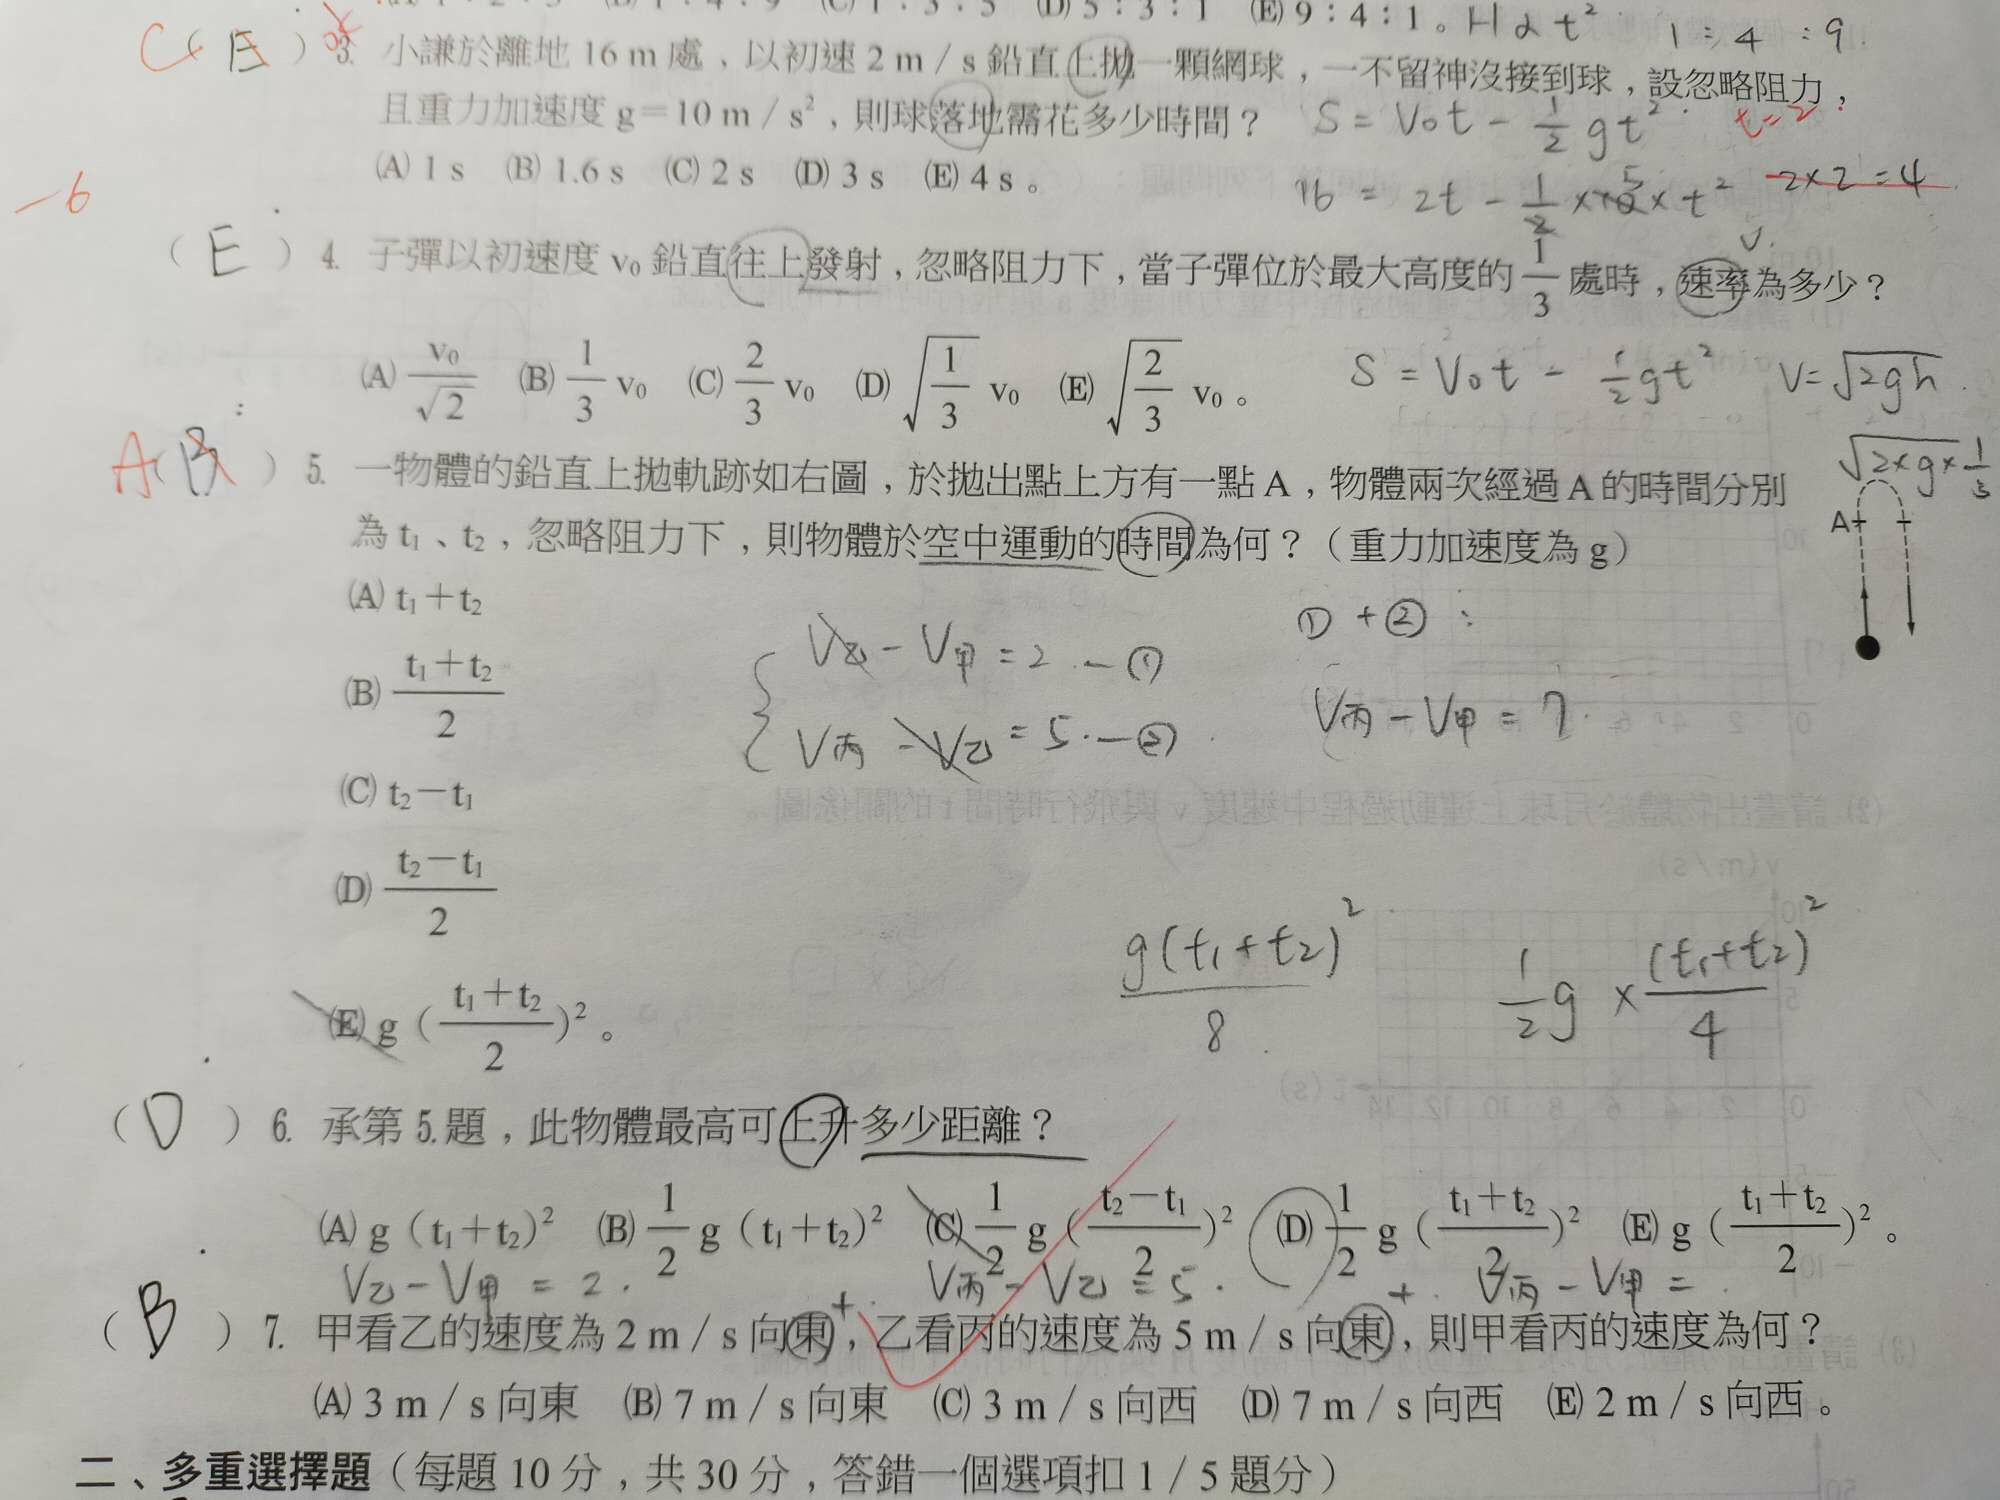 (A) 1：2：3 (B) 1：4：9 (C) 1：3：5 (D) 5：3：1 (E) 9：4：1。 H α t² 1：4：9.
C ( E ) 3. 小謙於離地 16 m 處，以初速 2 m／s 鉛直上拋一顆網球，一不留神沒接到球，設忽略阻力，
且重力加速度 g＝10 m／s²，則球落地需花多少時間？ S = V₀t - 1/2 gt² t=2
(A) 1 s (B) 1.6 s (C) 2 s (D) 3 s (E) 4 s。 16 = 2t - 1/2 × 10 × t² 5 2×2=4
-6
( E ) 4. 子彈以初速度 v₀ 鉛直往上發射，忽略阻力下，當子彈位於最大高度的 1/3 處時，速率為多少？
(A) v₀/√2 (B) 1/3 v₀ (C) 2/3 v₀ (D) √(1/3) v₀ (E) √(2/3) v₀。 S = V₀t - 1/2 gt² V=√2gh
√2×g×1/3
A ( B ) 5. 一物體的鉛直上拋軌跡如右圖，於拋出點上方有一點 A，物體兩次經過 A 的時間分別
為 t₁、t₂，忽略阻力下，則物體於空中運動的時間為何？（重力加速度為 g）
A
(A) t₁＋t₂
(B) (t₁＋t₂)/2
(C) t₂－t₁
(D) (t₂－t₁)/2
(E) g（(t₁＋t₂)/2）²。
V乙 - V甲 = 2. —①
V丙 - V乙 = 5. —②
① + ②：
V丙 - V甲 = 7.
g(t₁+t₂)²/8
1/2 g × (t₁+t₂)²/4
( D ) 6. 承第 5. 題，此物體最高可上升多少距離？
(A) g（t₁＋t₂）² (B) 1/2 g（t₁＋t₂）² (C) 1/2 g（(t₂－t₁)/2）² (D) 1/2 g（(t₁＋t₂)/2）² (E) g（(t₁＋t₂)/2）²。
V乙 - V甲 = 2. V丙 - V乙 = 5. V丙 - V甲 =
+ +
( B ) 7. 甲看乙的速度為 2 m／s 向東，乙看丙的速度為 5 m／s 向東，則甲看丙的速度為何？
(A) 3 m／s 向東 (B) 7 m／s 向東 (C) 3 m／s 向西 (D) 7 m／s 向西 (E) 2 m／s 向西。
二、多重選擇題（每題 10 分，共 30 分，答錯一個選項扣 1／5 題分）